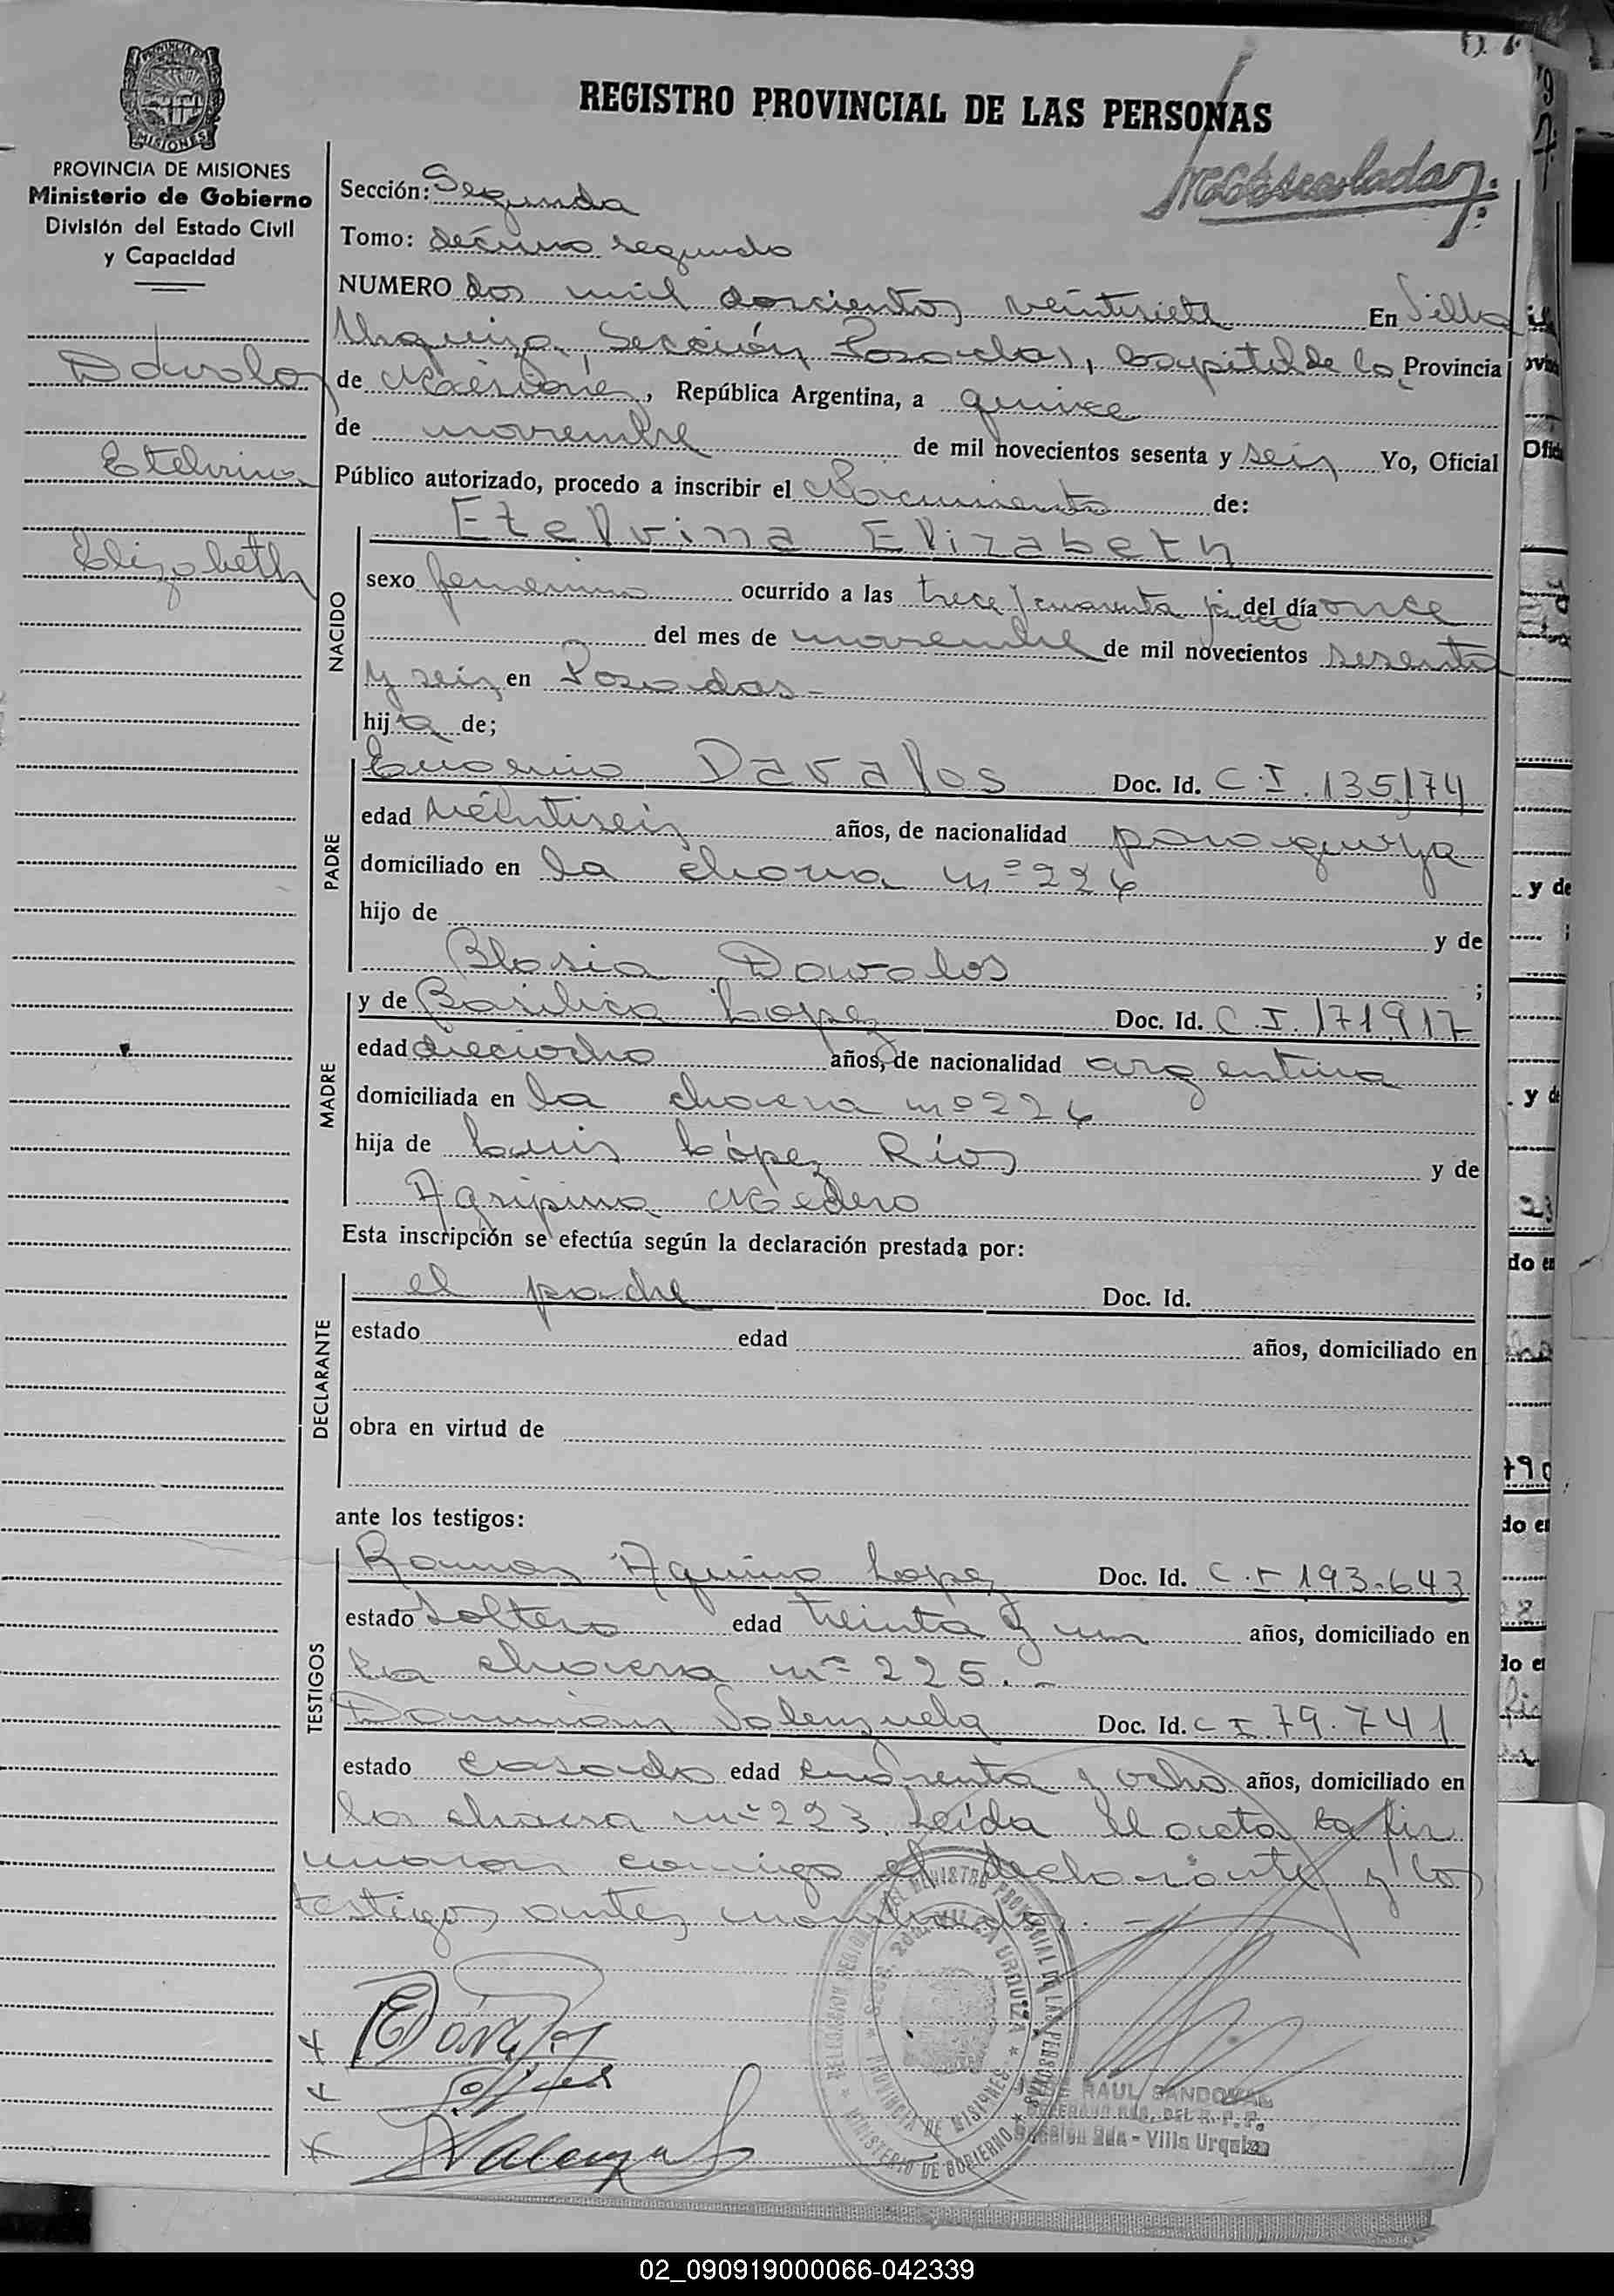 REGISTRO PROVINCIAL DE LAS PERSONAS
PROVINCIA DE MISIONES
Ministerio de Gobierno
División del Estado Civil
y Capacidad
Davalos
Etelvina
Elizabeth
Sección: Segunda
Tomo: décimo segundo
NUMERO dos mil doscientos veintisiete En Villa
Urquiza, Sección Posadas, Capital de la Provincia
de Misiones, República Argentina, a quince
de noviembre de mil novecientos sesenta y seis Yo, Oficial
Público autorizado, procedo a inscribir el Nacimiento de:
NACIDO
Etelvina Elizabeth
sexo femenino ocurrido a las trece y cuarenta y cinco del día once
del mes de noviembre de mil novecientos sesenta
y seis en Posadas.-
hija de;
PADRE
Eugenio Davalos Doc. Id. C.I. 135,174
edad veintiseis años, de nacionalidad paraguaya
domiciliado en la chacra nº 224
hijo de
y de
Blasia Davalos ;
MADRE
y de Basilica Lopez Doc. Id. C.I. 171,917
edad dieciocho años, de nacionalidad argentina
domiciliada en la chacra nº 224
hija de Luis López Ríos y de
Agripina Medero
Esta inscripción se efectúa según la declaración prestada por:
DECLARANTE
el padre Doc. Id.
estado edad años, domiciliado en
obra en virtud de
ante los testigos:
TESTIGOS
Ramon Aquino Lopez Doc. Id. C.I 193.643
estado soltero edad treinta y un años, domiciliado en
la chacra nº 225.-
Damián Valenzuela Doc. Id. C I 79.741
estado casado edad cuarenta y ocho años, domiciliado en
la chacra nº 223. Leída el acta la fir
maron conmigo el declarante y los
testigos antes nombrados.-
DELEGACION REGIONAL DEL REGISTRO PROVINCIAL DE LAS PERSONAS
MINISTERIO DE GOBIERNO
SECC. 2da. VILLA URQUIZA
PROVINCIA DE MISIONES
RAUL SANDOVAL
Sección 2da - Villa Urquiza
02_090919000066-042339